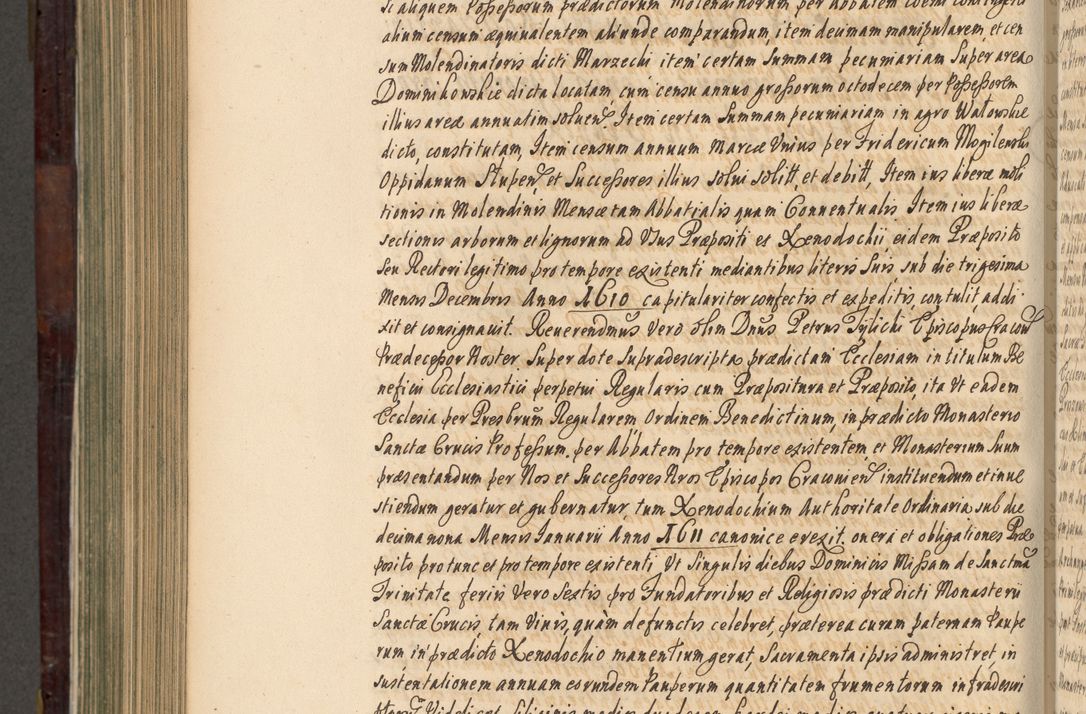 si aliquem Possessorum prædictorum Molendinorum per Abbatem coemi contingeret
alium censum æquiualentem aliunde comparandum, item decimam manipularem, et cen
sum Molendinatoris dicti Marzechi item certam Summam pecuniariam Super area
Dominikowskie dicta locatam cum censu annuo grossorum octodecem per Possessorem
illius areæ annuatim soluen. Item certam Summam pecuniariam in agro Watowskie
dicto, constitutam, Item censum annuum Marcæ Vnius per Fridericum Mogilenski
Oppidanum Stupen, et Successores illius solui solitt, et debitt, Item ius liberæ moli
tionis in Molendinis Mensæ tam Abbatialis quam Conuentualis Item ius liberæ
sectionis arborum et lignorum ad Vsus Præpositi et Xenodochii, eidem Præposito
seu Rectori legitimo pro tempore existenti mediantibus literis suis, sub die trigesima
Mensis Decembris Anno 1610 capitulariter confectis et expeditis contulit, addi
xit et consignauit. Reuerendmus Vero olim Dnus Petrus Tylicki Episcopus Cracou
Prædecessor Noster Super dote Supradescripta prædictam Ecclesiam in titulum Be
neficii Ecclesiastici perpetui Regularis cum Præpositura et Præposito, ita Vt eadem
Ecclesia per Presbrum Regularem Ordinem Benedictinum, in prædicto Monasterio
Sanctæ Crucis Professum, per Abbatem pro tempore existentem, et Monasterium Suum
præsentandum per Nos et Successores Nros Episcopos Cracouien instituendum et inue
stiendum geratur et gubernatur, tum Xenodochium Authoritate Ordinaria sub die
decima nona Mensis Ianuarii Anno 1611 canonice erexit, onera et obligationes Præ
posito pro tunc et pro tempore existenti Vt Singulis diebus Dominicis Missam de Sanctma
Trinitate feriis Vero Sextis pro Fundatoribus et Religiosis prædicti Monasterii
Sanctæ Crucis, tam Viuis, quàm defunctis celebret, præterea curam paternam Paupe
rum in prædicto Xenodochio manentium gerat, Sacramenta ipsis administret in
sustentationem annuam eorundem Pauperum quantitatem frumentorum infradescri